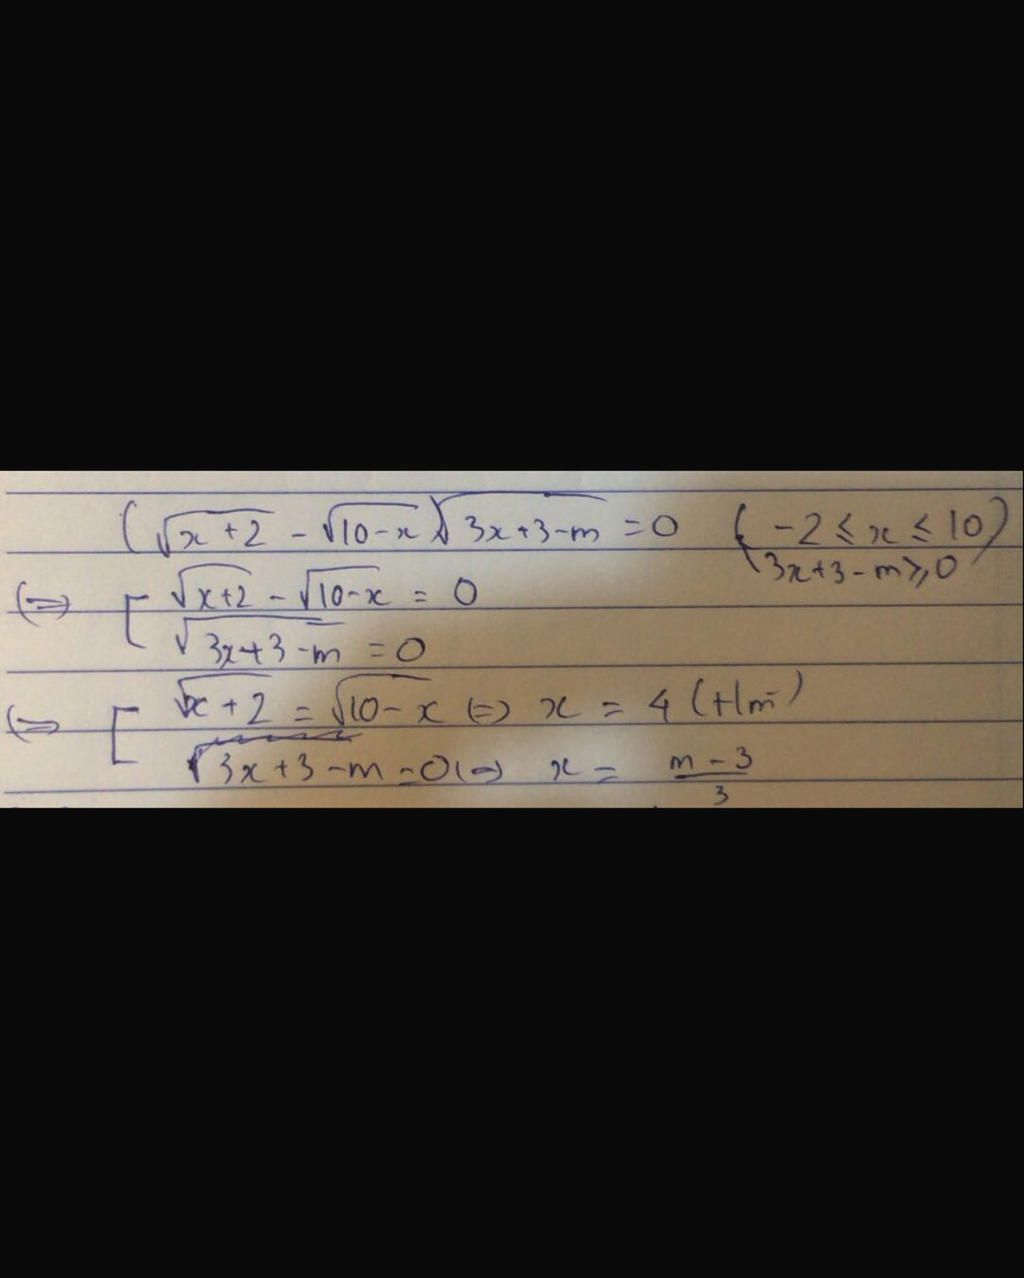 (√(x+2) - √(10-x))√(3x+3-m) = 0 (-2 ≤ x ≤ 10
3x+3-m ≥ 0)
(=) [ √(x+2) - √(10-x) = 0
√(3x+3-m) = 0
(=) [ √(x+2) = √(10-x) (=) x = 4 (t/m)
√(3x+3-m) = 0 (=) x = (m-3)/3